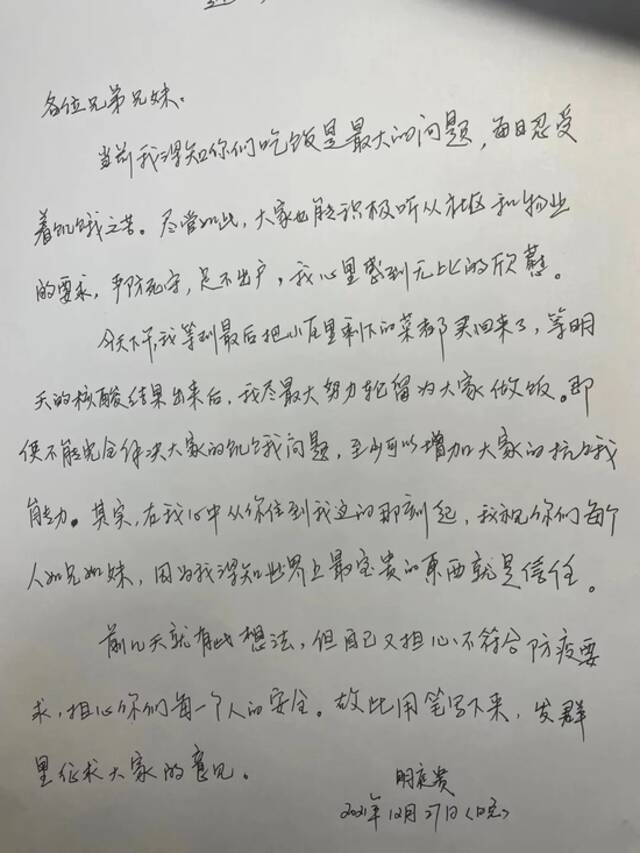 各位兄弟兄妹:
当前我得知你们吃饭是最大的问题,每日忍受
着饥饿之苦。尽管如此,大家也能积极听从社区和物业
的要求,严防死守,足不出户,我心里感到无比的欣慰。
今天下午,我等到最后把小区里剩下的菜都买回来了,等明
天的核酸结果出来后,我尽最大努力轮留为大家做饭。即
便不能完全解决大家的饥饿问题,至少可以增加大家的抗饿
能力。其实,在我心中从你住到我这的那刻起,我视你们每个
人如兄如妹,因为我得知世界上最宝贵的東西就是信任。
前几天就有此想法,但自己又担心不符合防疫要
求,担心你们每一个人的安全。故此用笔写下来,发群
里征求大家的意见。
明
2021年12月27日